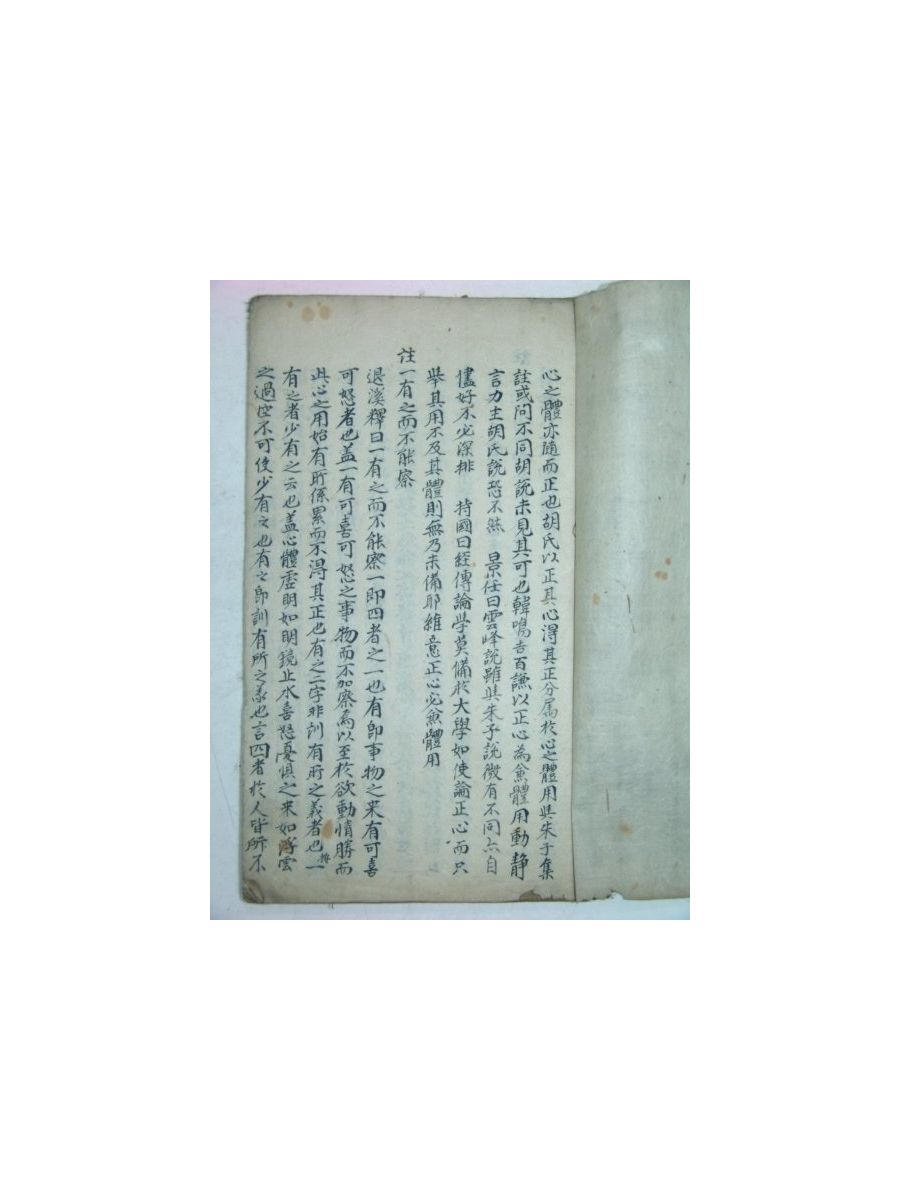 心之體亦隨而正也胡氏以正其心得其正分属於心之體用與朱子集
註或问不同胡說未見其可也韓鳴吉百謙以正心為兼體用動静
言力主胡氏說恐不然 景任曰雲峰說雖與朱子說微有不同亦自
儘好不必深排 持國曰經傳論學莫備於大學如使論正心而只
舉其用不及其體則無乃未備耶維意正心必兼體用
註一有之而不能察
退溪釋曰一有之而不能察一即四者之一也有即事物之来有可喜
可怒者也盖一有可喜可怒之事物而不加察焉以至於欲動情勝而
此心之用始有所係累而不得其正也有之二字非訓有所之義者也一
有之者少有之云也盖心體虛明如明鏡止水喜怒憂惧之来如浮雲
之過空不可使少有之也有之即訓有所之義也言四者於人皆所不